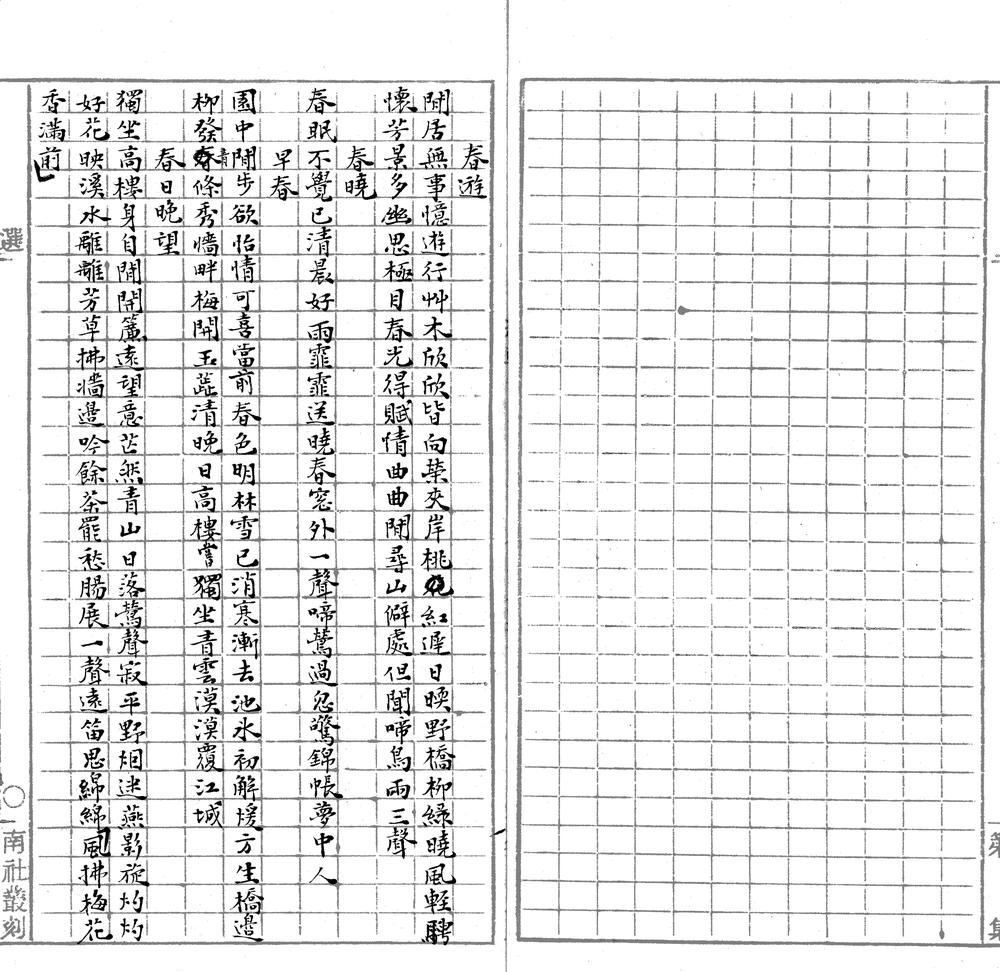 春遊
閒居無事憶遊行艸木欣欣皆向榮夾岸桃紅遲日暎野橋柳綠曉風輕騁
懷芳景多幽思極目春光得賦情曲曲閒尋山僻處但聞啼鳥兩三聲
春曉
春眠不覺已清晨好雨霏霏送曉春窓外一聲啼鶯過忽驚錦帳夢中人
早春
園中閒步欲怡情可喜當前春色明林雪已消寒漸去池氷初解煖方生橋邊
柳發青條秀墻畔梅開玉蕋清晚日高樓嘗獨坐青雲漠漠覆江城
春日晚望
獨坐高樓身自閒開簾遠望意茫然青山日落鶯聲寂平野烟迷燕影旋灼灼
好花映溪水離離芳草拂墻邊吟餘茶罷愁腸展一聲遠笛思綿綿風拂梅花
香滿前
選
南社叢刻
第
集